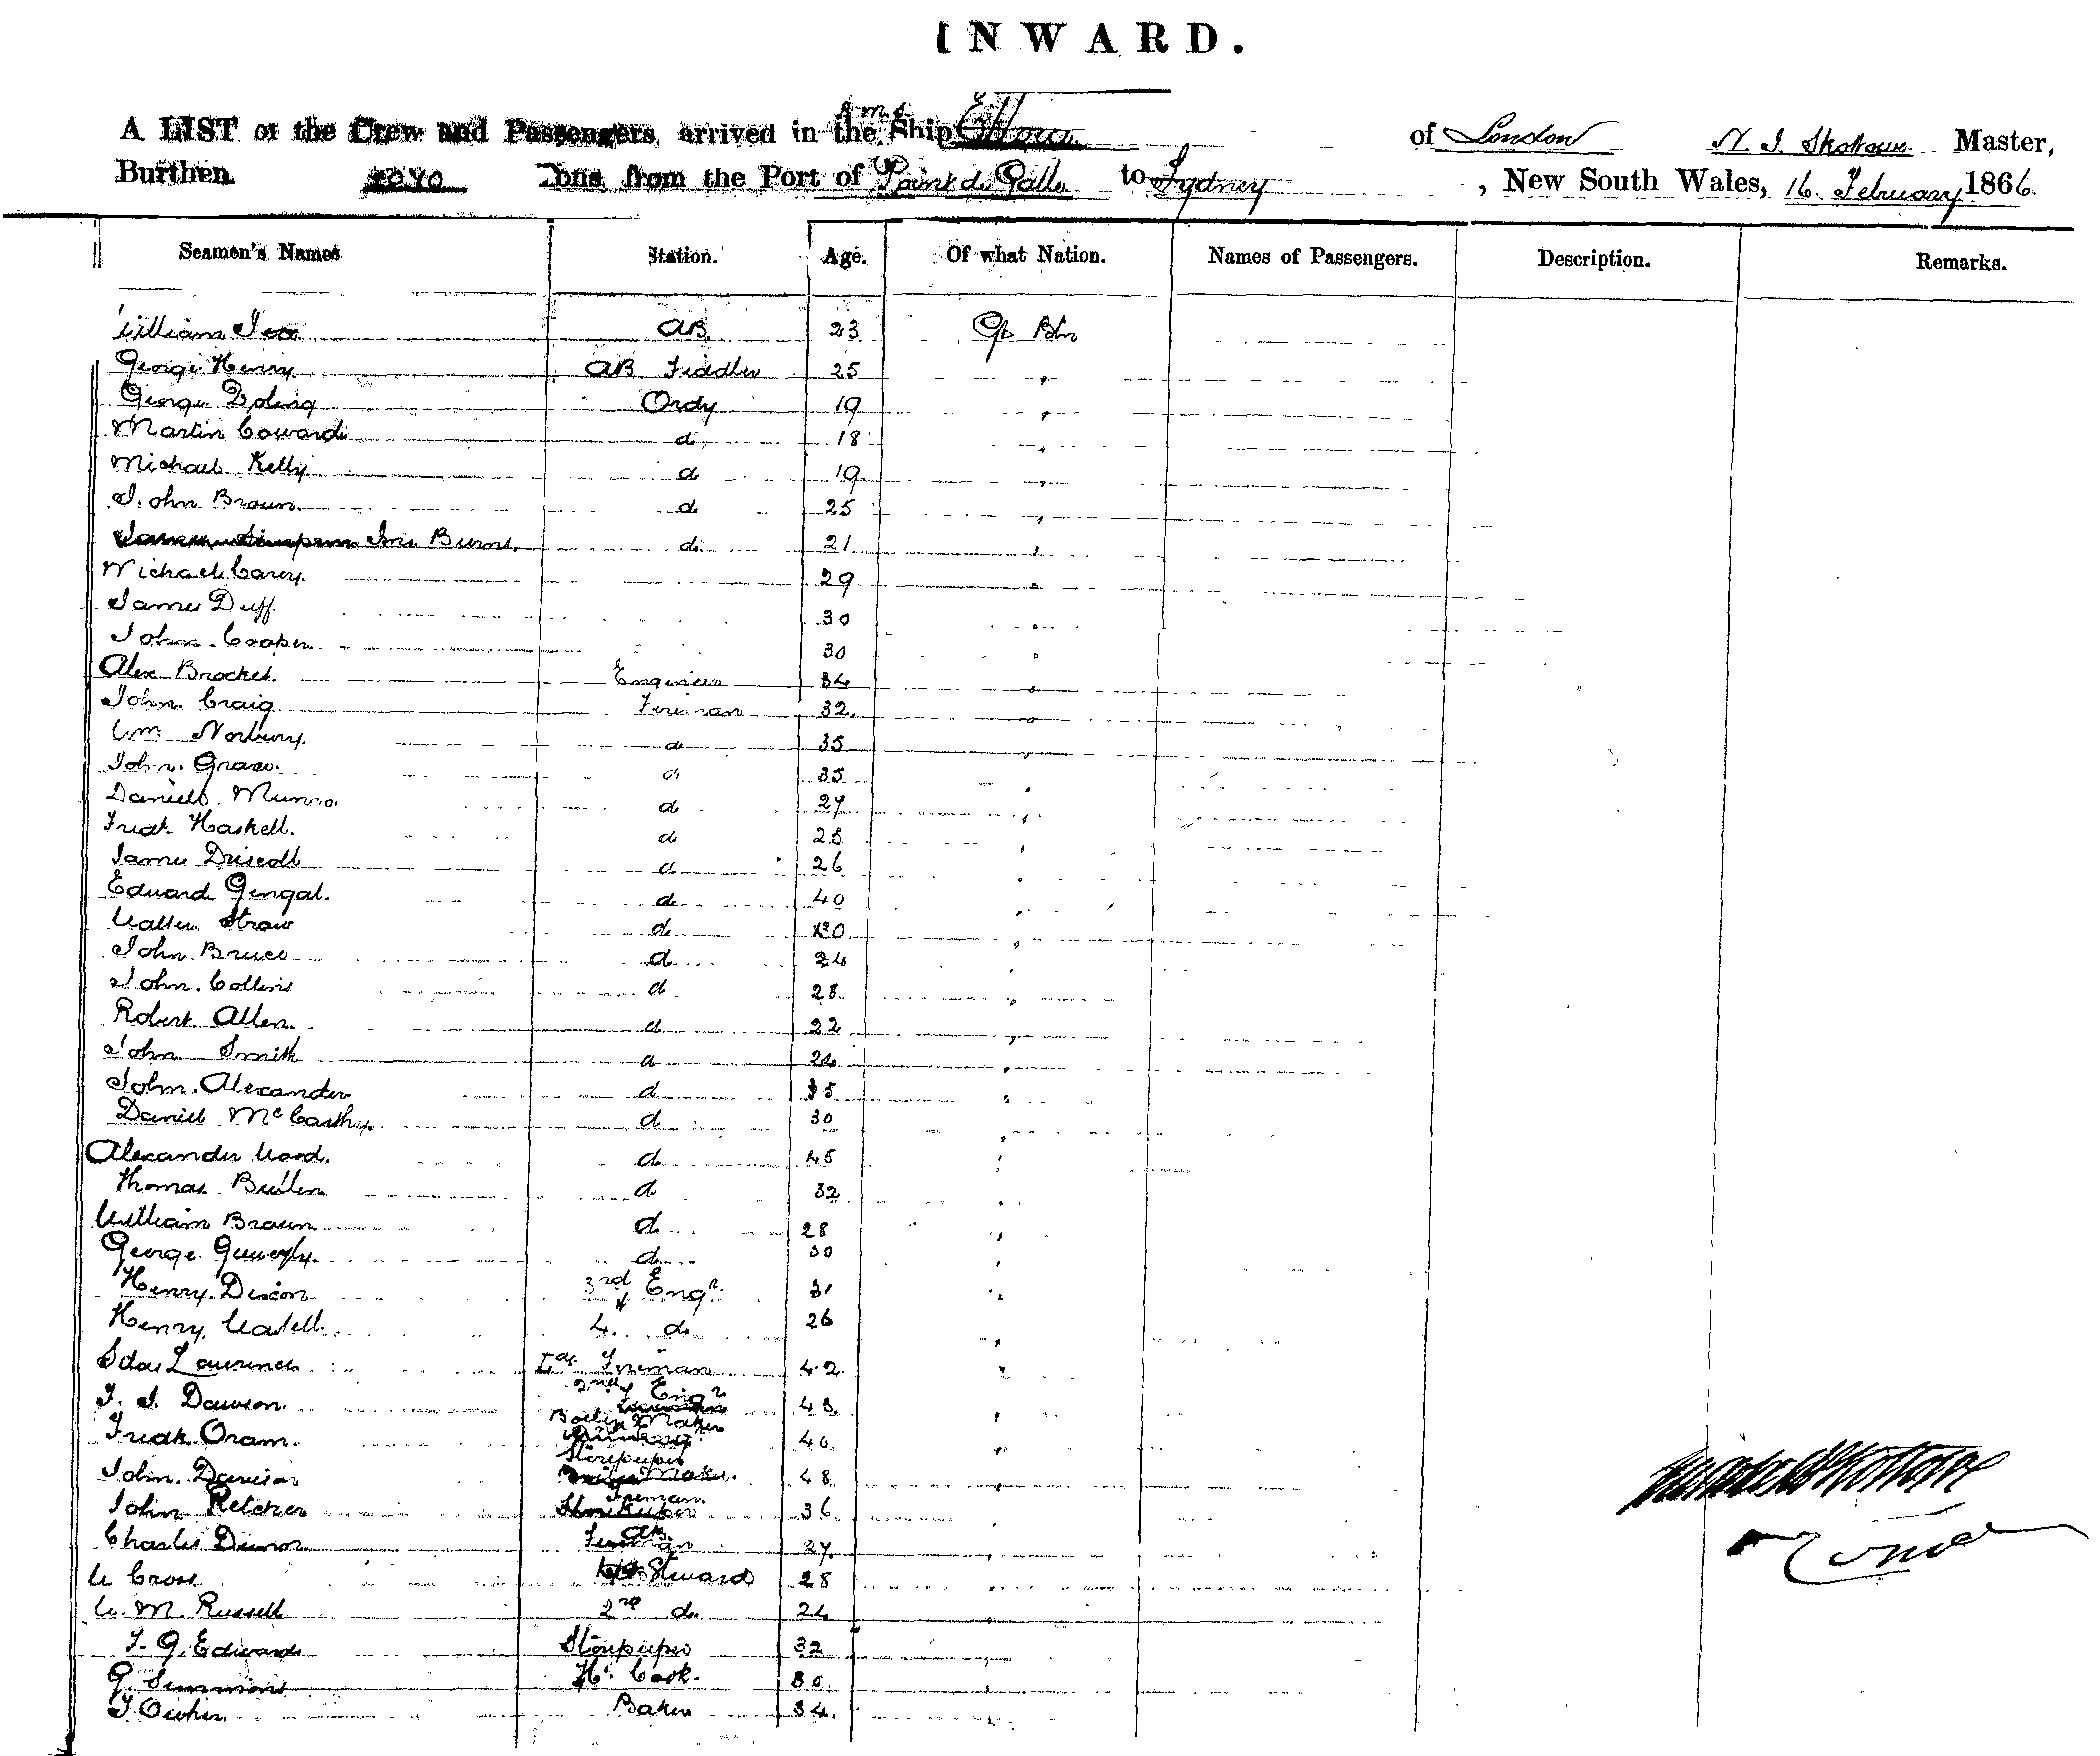 INWARD.
A LIST of the Crew and Passengers, arrived in the Ship of London Master,
Burthen Tons from the Port of Point de Galle to Sydney , New South Wales, 16 February 1866.
Seamen's Names Station. Age. Of what Nation. Names of Passengers. Description. Remarks.
William AB 23 Gt Btn
George Henry AB Fiddler 25 "
George Doling Ordy 19 "
Martin Coward do 18 "
Michael Kelly do 19 "
John Brown do 25 "
Burns do 21 "
Michael Carey 29 "
James Duff 30 "
John Cooper 30 "
Alex Brocket Engineer 34 "
John Craig Fireman 32 "
Wm Norbury do 35 "
John Grace do 35 "
Daniel Munro do 27 "
Fredk Haskell do 28 "
James Driscoll do 26 "
Edward Gingal do 40 "
Walter Straw do 30 "
John Bruce do 24 "
John Collins do 28 "
Robert Allen do 22 "
John Smith do 24 "
John Alexander do 35 "
Daniel McCarthy do 30 "
Alexander Wood do 45 "
Thomas Butler do 32 "
William Brown do 28 "
George do 30 "
Henry Dixon 3rd Engr 31 "
Henry 4 do 26 "
Laurence Fireman 42 "
Dawson 2nd Engr 43 "
Fredk Oram Boiler Maker 40 "
John Davison Storekeeper 48 "
John Fletcher Fireman 36 "
Charles AB 27 "
W Cross Steward 28 "
W. M. Russell 2nd do 24 "
F. G. Edwards Storekeeper 32 "
G. Simmons Cook 30 "
Baker 34 "